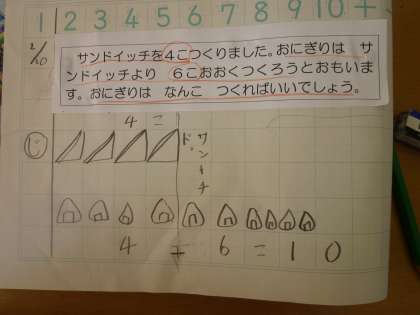 1 2 3 4 5 6 7 8 9 10 +
2/10
サンドイッチを4こつくりました。おにぎりは サ
ンドイッチより 6こおおくつくろうとおもいま
す。おにぎりは なんこ つくればいいでしょう。
4こ
じ
サンドイッチ
4+6=10